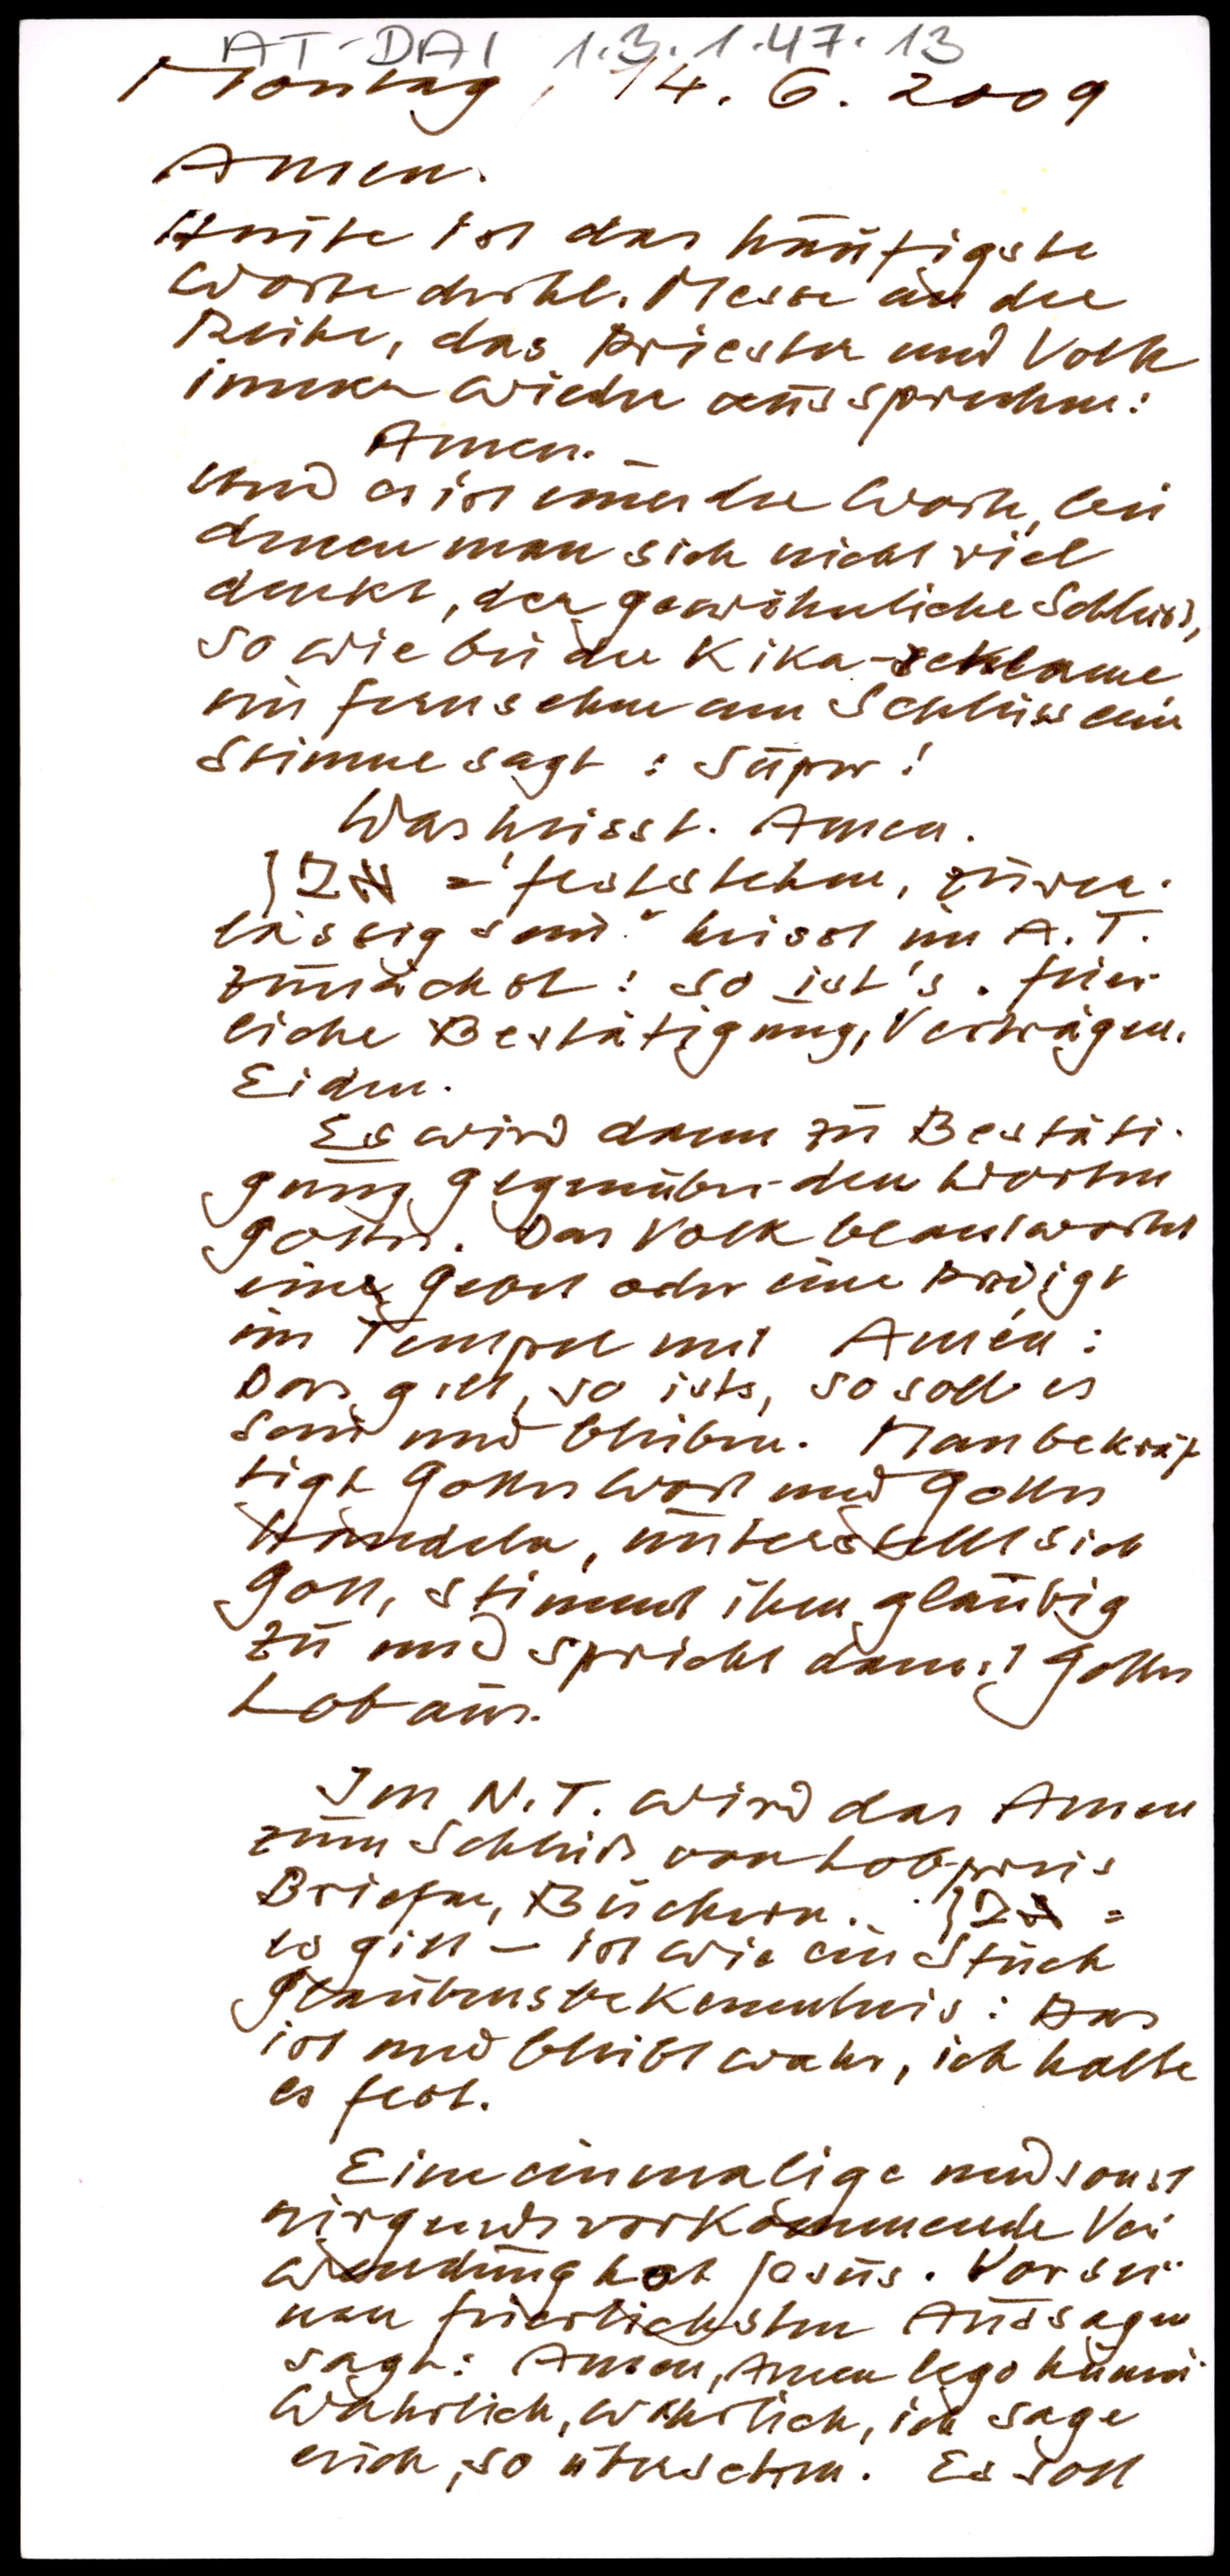 AT-DAI 1.3.1.47.13
Montag, 14. 6. 2009
Amen.
Heute ist das häufigste
Wort der hl. Messe an der
Reihe, das Priester und Volk
immer wieder aussprechen:
Amen.
Und es ist eines der Worte, bei
denen man sich nicht viel
denkt, der gewöhnliche Schluss,
so wie bei der Kika-reklame
im Fernsehen am Schluss eine
Stimme sagt: Super!
Was heisst. Amen.
אמן = "feststehen, zuver-
lässig sein" heisst im A.T.
zunächst: so ist's. feier-
liche Bestätigung, Verträgen,
Eiden.
Es wird dann zu Bestäti-
gung gegenüber den Worten
Gottes. Das Volk beantwortet
eine Gebet oder eine Predigt
im Tempel mit Amén:
Das gilt, so ists, so soll es
sein und bleiben. Man bekräf
tigt Gottes Wort und Gottes
Handeln, unterstellt sich
Gott, stimmt ihm gläubig
zu und spricht damit Gottes
Lob aus.
Im N.T. wird das Amen
zum Schluß von Lobpreis
Briefen, Büchern. אמן =
es gilt – ist wie ein Stück
Glaubensbekenntnis: Das
ist und bleibt wahr, ich halte
es fest.
Eine einmalige und sonst
nirgends vorkommende Ver
wendung hat Jesus. Vor sei-
nen feierlichsten Aussagen
sagt: Amen, Amen lego hümin
Wahrlich, wahrlich, ich sage
euch, so übersetzen. Es soll